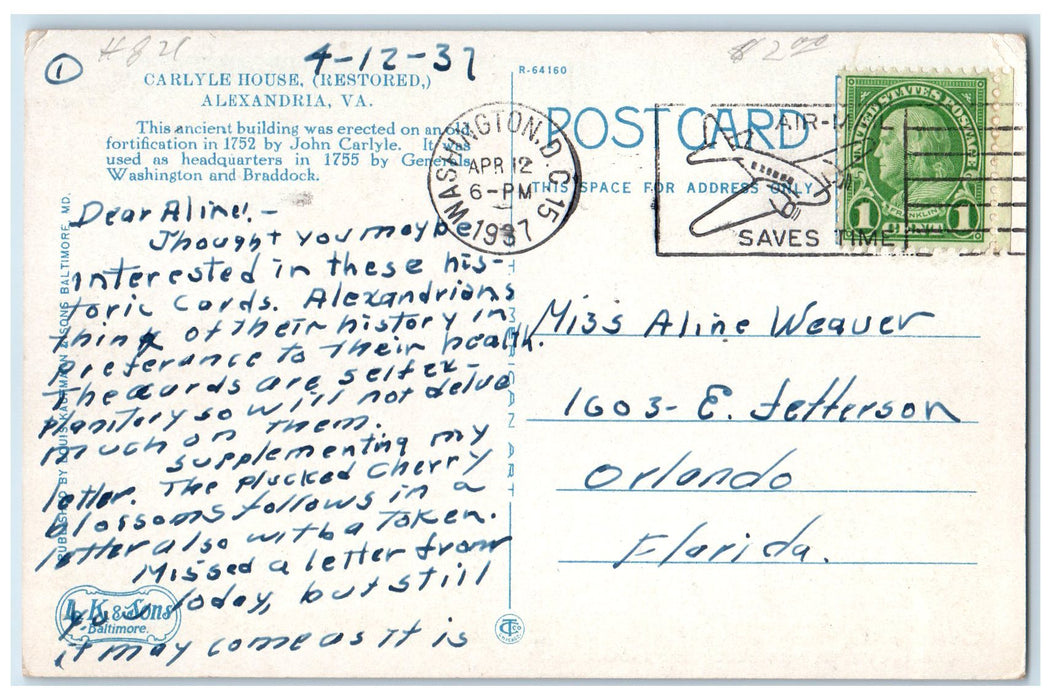 ①
H821
4-12-37
$2.00
CARLYLE HOUSE, (RESTORED,)
ALEXANDRIA, VA.
This ancient building was erected on an old
fortification in 1752 by John Carlyle. It was
used as headquarters in 1755 by Generals
Washington and Braddock.
Dear Aline:-
Thought you maybe
interested in these his-
toric Cards. Alexandrians
think of their history in
preferance to their health.
The cards are self ex-
planitory so will not delve
much on them.
supplementing my
letter. The plucked Cherry
blossoms follows in a
letter also with a Token.
Missed a letter from
you today, but still
it may come as it is
PUBLISHED BY LOUIS KAUFMAN & SONS BALTIMORE, MD.
L. K. & Sons
Baltimore.
R-64160
POST CARD
THIS SPACE FOR ADDRESS ONLY
WASHINGTON, D.C. 15
APR 12
6-PM
1937
AIR-M
SAVES TIME
UNITED STATES POSTAGE
FRANKLIN
1 1
Miss Aline Weaver
1603- E. Jefferson
Orlando
Florida.
CT
CHICAGO